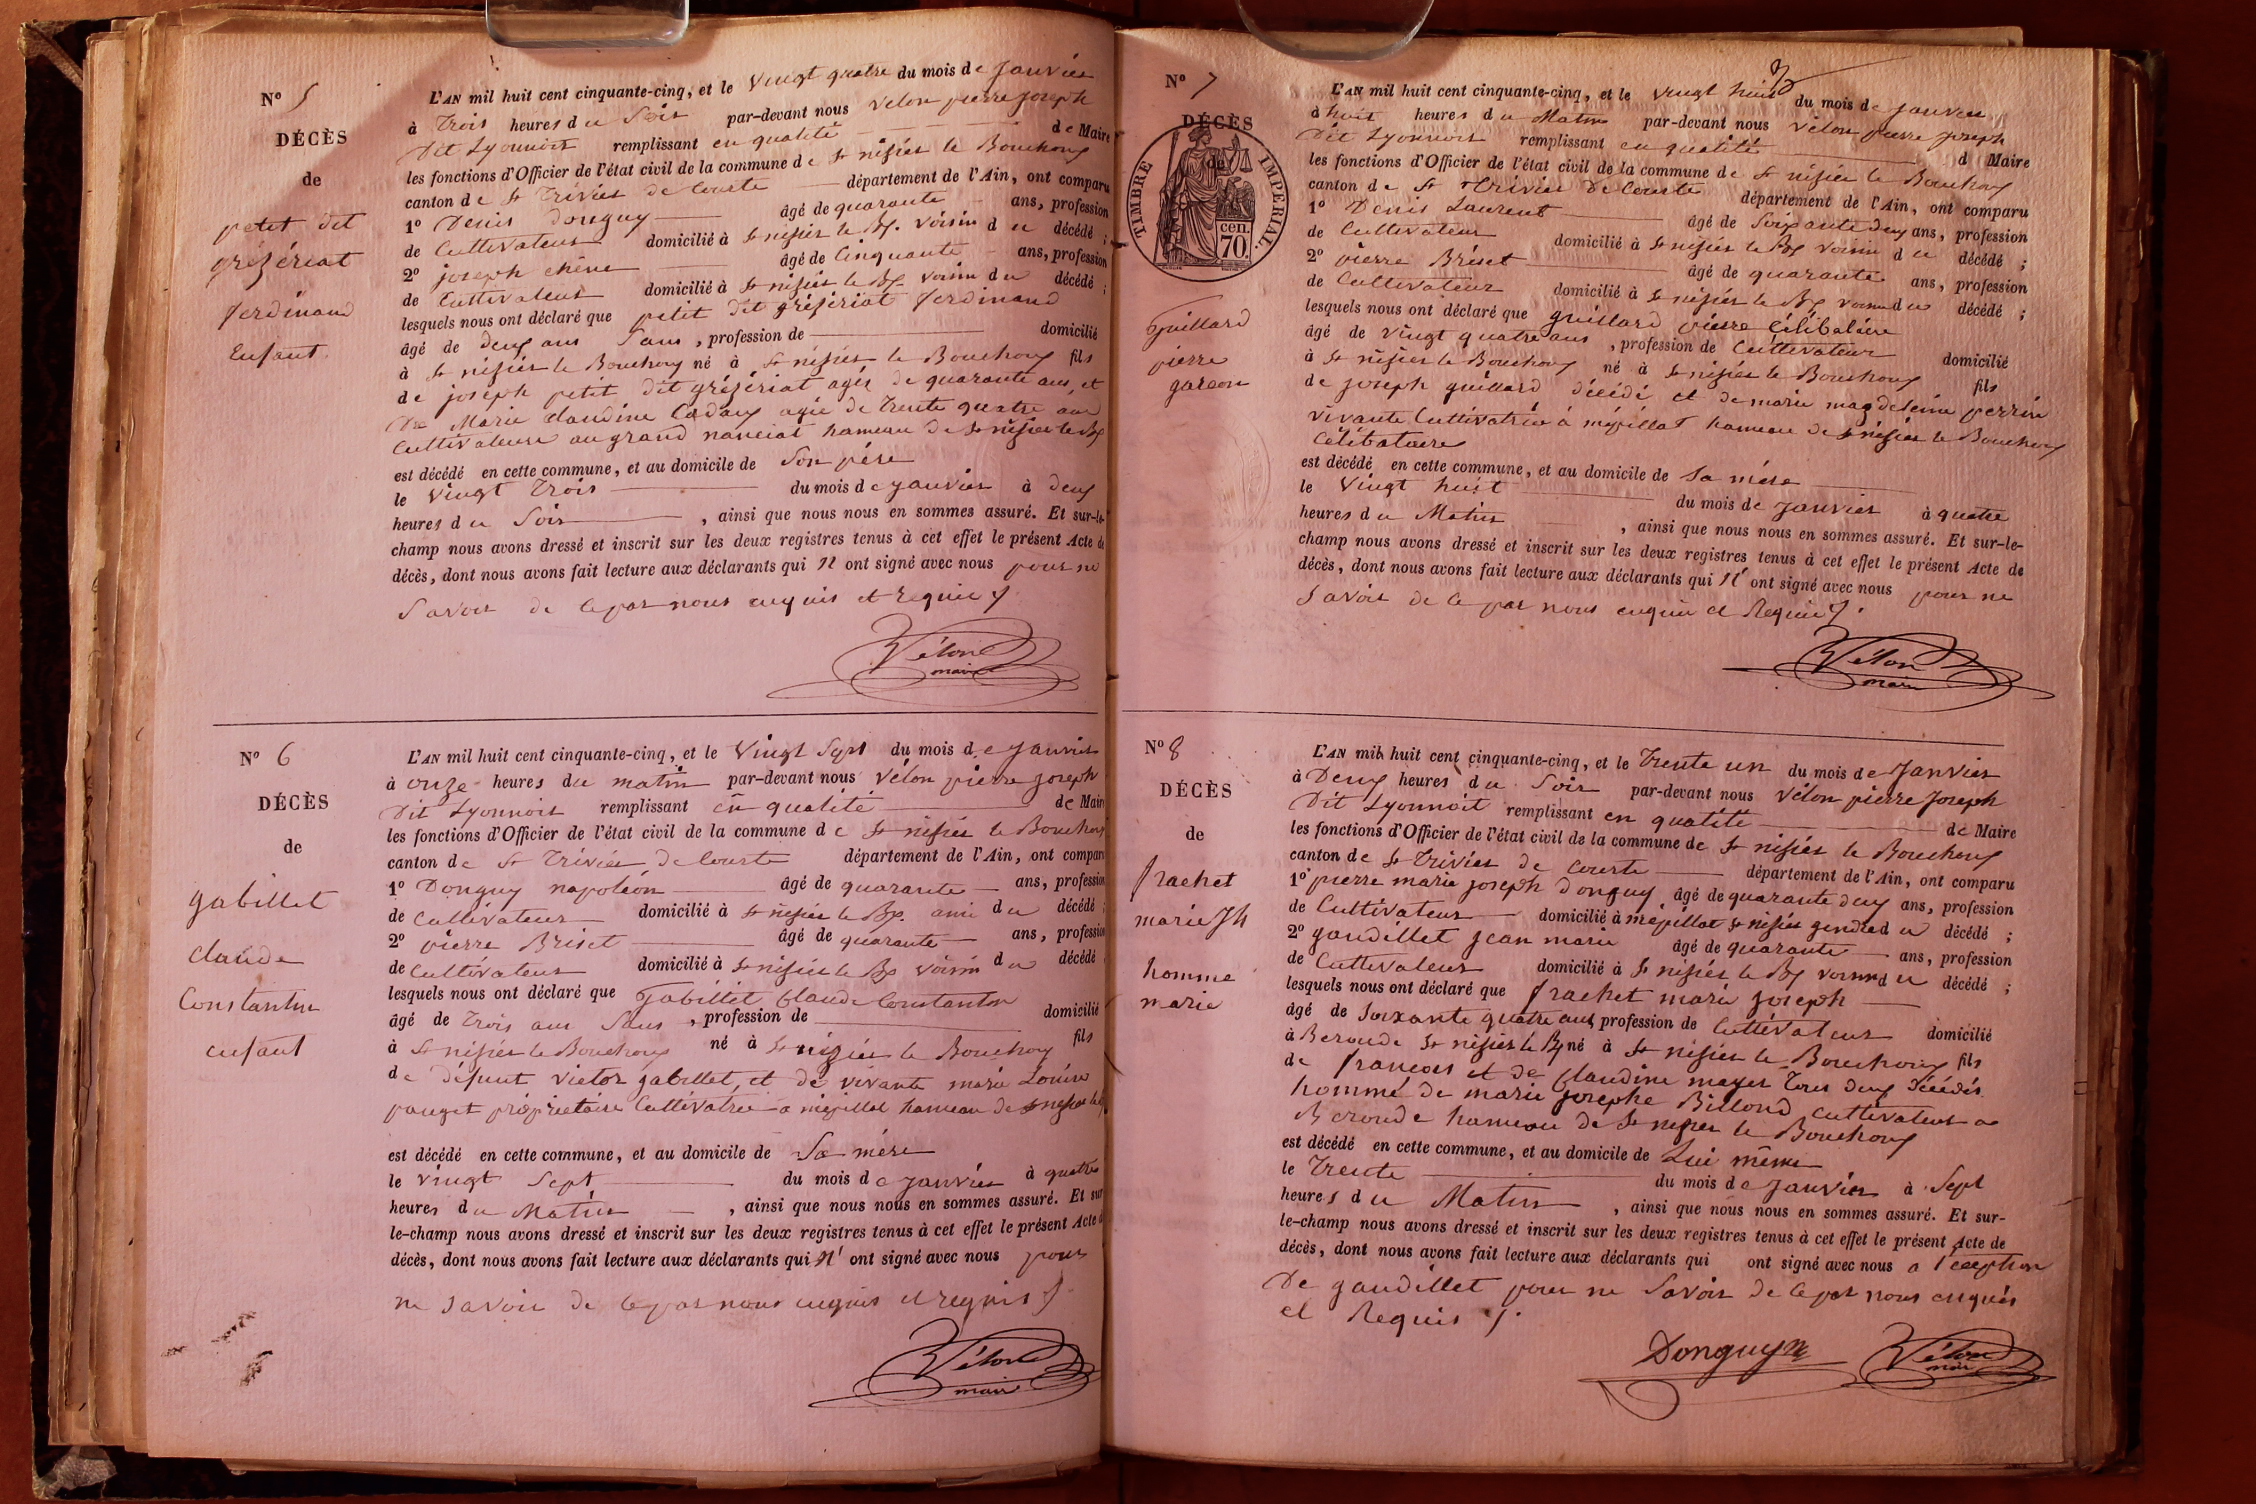 N° 5
DÉCÈS
de
petit dit
grézériat
ferdinand
Enfant
L'AN mil huit cent cinquante-cinq, et le vingt quatre du mois de janvier
à trois heures du Soir par-devant nous vélon pierre joseph
Dit Lyonnois remplissant en qualité de Maire
les fonctions d'Officier de l'état civil de la commune de St nisier le Bouchoux
canton de St trivier de Courte département de l'Ain, ont comparu
1° Denis donguy âgé de quarante ans, profession
de Cultivateur domicilié à St nisier le Bx. voisin du décédé ;
2° joseph chêne âgé de Cinquante ans, profession
de Cultivateur domicilié à St nisier le Bx voisin du décédé ;
lesquels nous ont déclaré que petit dit grézériat ferdinand
âgé de deux ans Sans, profession de domicilié
à St nisier le Bouchoux né à St nisier le Bouchoux fils
de joseph petit dit grézériat agés de quarante ans, et
De Marie claudine Cadoux agée de trente quatre ans
Cultivateurs au grand nanciat hameau de St nisier le Bx
est décédé en cette commune, et au domicile de Son père
le vingt trois du mois de janvier à deux
heures du Soir, ainsi que nous nous en sommes assuré. Et sur-le-
champ nous avons dressé et inscrit sur les deux registres tenus à cet effet le présent Acte de
décès, dont nous avons fait lecture aux déclarants qui n ont signé avec nous pour ne
Savoir de ce par nous enquis et requis
Vélon
maire
N° 6
DÉCÈS
de
gabillet
claude
Constantin
enfant
L'AN mil huit cent cinquante-cinq, et le Vingt Sept du mois de janvier
à onze heures du matin par-devant nous vélon pierre joseph
Dit Lyonnois remplissant en qualité de Maire
les fonctions d'Officier de l'état civil de la commune de St nisier le Bouchoux
canton de St trivier de Courte département de l'Ain, ont comparu
1° Donguy napoléon âgé de quarante ans, profession
de Cultivateur domicilié à St nisier le Bx. ami du décédé ;
2° pierre Briset âgé de quarante ans, profession
de Cultivateur domicilié à St nisier le Bx voisin du décédé
lesquels nous ont déclaré que gabillet Claude Constantin
âgé de trois ans Sans, profession de domicilié
à St nisier le Bouchoux né à St nizier le Bouchoux fils
de défunt victor gabillet, et de vivante marie Louise
pauget propriétaire Cultivatrice a mépillat hameau de St nisier le Bx
est décédé en cette commune, et au domicile de Sa mère
le vingt Sept du mois de janvier à quatre
heures du Matin, ainsi que nous nous en sommes assuré. Et sur
le-champ nous avons dressé et inscrit sur les deux registres tenus à cet effet le présent Acte de
décès, dont nous avons fait lecture aux déclarants qui n' ont signé avec nous pour
ne Savoir de ce par nous enquis et requis
Vélon
maire
N° 7
DÉCÈS
de
TIMBRE IMPÉRIAL.
cen.
70.
guillard
pierre
garcon
L'AN mil huit cent cinquante-cinq, et le vingt huit du mois de janvier
à huit heures du Matin par-devant nous vélon pierre joseph
Dit Lyonnois remplissant en qualité d Maire
les fonctions d'Officier de l'état civil de la commune de St nisier le Bouchoux
canton de St trivier De Courte département de l'Ain, ont comparu
1° Denis Laurent âgé de Soixante deux ans, profession
de Cultivateur domicilié à St nisier le Bx voisin du décédé ;
2° pierre Briset âgé de quarante ans, profession
de Cultivateur domicilié à St nisier le Bx voisin du décédé ;
lesquels nous ont déclaré que guillard pierre Célibataire
âgé de vingt quatre ans, profession de Cultivateur domicilié
à St nisier le Bouchoux né à St nisier le Bouchoux fils
de joseph guillard décédé et de marie magdeleine perrin
vivante Cultivatrice à mépillat hameau de St nisier le Bouchoux
Célibataire
est décédé en cette commune, et au domicile de Sa mére
le Vingt huit du mois de janvier à quatre
heures du Matin, ainsi que nous nous en sommes assuré. Et sur-le-
champ nous avons dressé et inscrit sur les deux registres tenus à cet effet le présent Acte de
décès, dont nous avons fait lecture aux déclarants qui n' ont signé avec nous pour ne
Savoir de ce par nous enquis et Requis
Vélon
maire
N° 8
DÉCÈS
de
frachet
marie Jh
homme
marié
L'AN mil huit cent cinquante-cinq, et le trente un du mois de Janvier
à Deux heures du Soir par-devant nous vélon pierre Joseph
Dit Lyonnoit remplissant en qualité de Maire
les fonctions d'Officier de l'état civil de la commune de St nisier le Bouchoux
canton de St trivier de Courte département de l'Ain, ont comparu
1° pierre marie joseph Donguy âgé de quarante deux ans, profession
de Cultivateur domicilié à mépillat St nisier gendre du décédé ;
2° gaudillet jean marie âgé de quarante ans, profession
de Cultivateur domicilié à St nisier le Bx voisin du décédé ;
lesquels nous ont déclaré que frachet marie joseph
âgé de Soixante quatre ans, profession de Cultivateur domicilié
à Beroude St nisier le Bx né à St nisier le Bouchoux fils
de francois et de Claudine mayer tous deux Décédés
hommé de marie josephe Billond Cultivateur a
Beroude hameau de St nisier le Bouchoux
est décédé en cette commune, et au domicile de Lui même
le trente du mois de janvier à Sept
heures du Matin, ainsi que nous nous en sommes assuré. Et sur-
le-champ nous avons dressé et inscrit sur les deux registres tenus à cet effet le présent Acte de
décès, dont nous avons fait lecture aux déclarants qui ont signé avec nous a l'éception
De gaudillet pour ne Savoir de ce par nous enquis
et Requis
Donguy
Vélon
maire